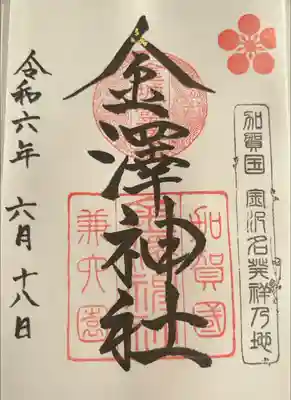 加賀国 金沢名発祥乃地
金澤神社
加賀國
兼六園
令和六年 六月 十八日